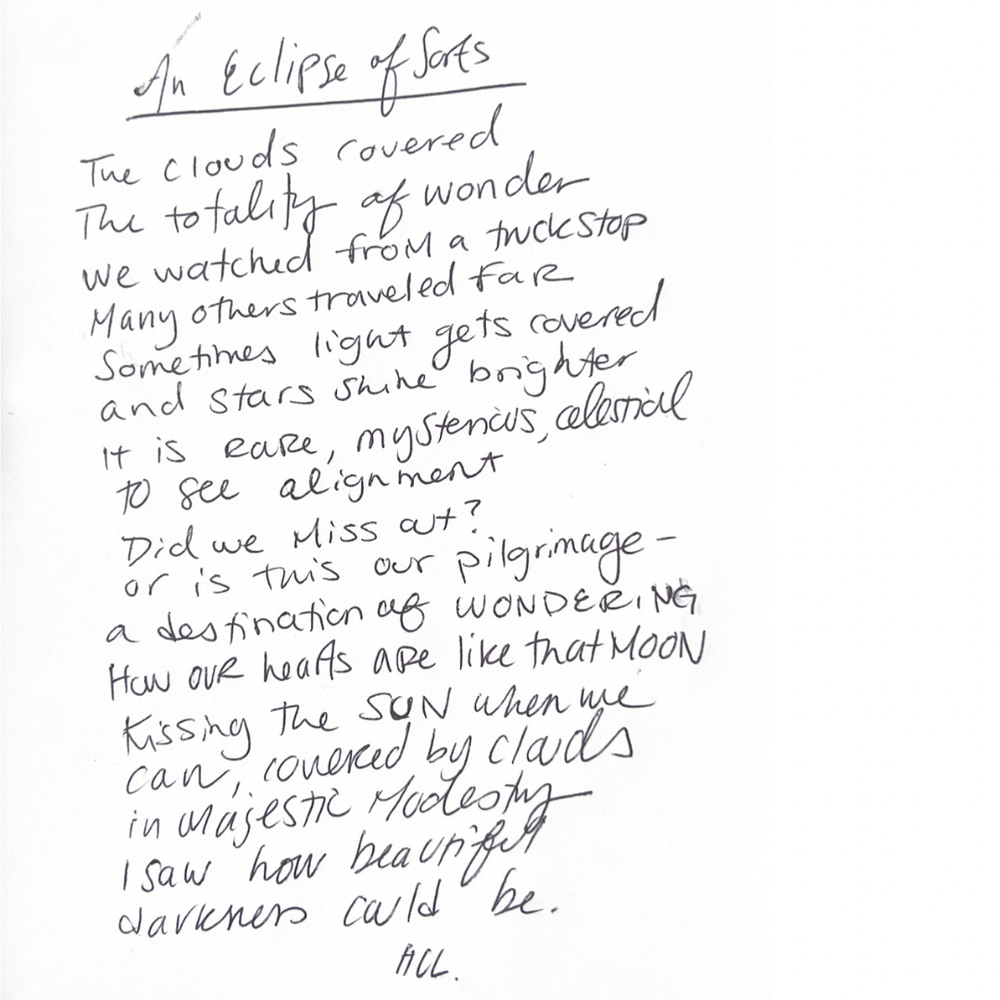 An Eclipse of Sorts
The clouds covered
The totality of wonder
we watched from a truckstop
Many others traveled far
Sometimes light gets covered
and stars shine brighter
it is rare, mysterious, celestial
to see alignment
Did we Miss out?
or is this our pilgrimage –
a destination of WONDERING
How our hearts are like that MOON
Kissing the SUN when we
can, covered by clouds
in majestic Modesty
I saw how beautiful
darkness could be.
ACL.